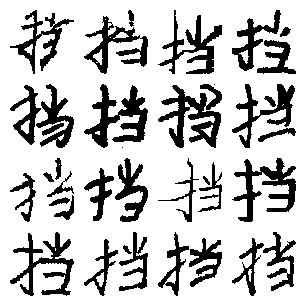 挡挡挡挡
挡挡挡挡
挡挡挡挡
挡挡挡挡